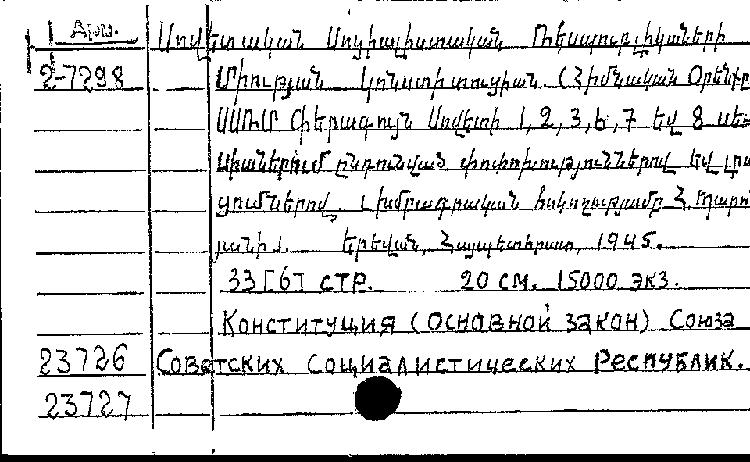 Арм.
Սովետական Սոցիալիստական Ռեսպուբլիկաների
2-7298 Միության Կոնստիտուցիան (Հիմնական Օրենք
ՍՍՌՄ Գերագույն Սովետի 1, 2, 3, 6, 7 եվ 8 սես
սիաներում ընդունված փոփոխություններով եվ լրա
ցումներով. Խմբագրական հսկողությամբ Հ.
Երեվան, Հայպետհրատ, 1945.
33 [6] стр. 20 см. 15000 экз.
Конституция (основной закон) Союза
23726 Советских Социалистических Республик.
23727